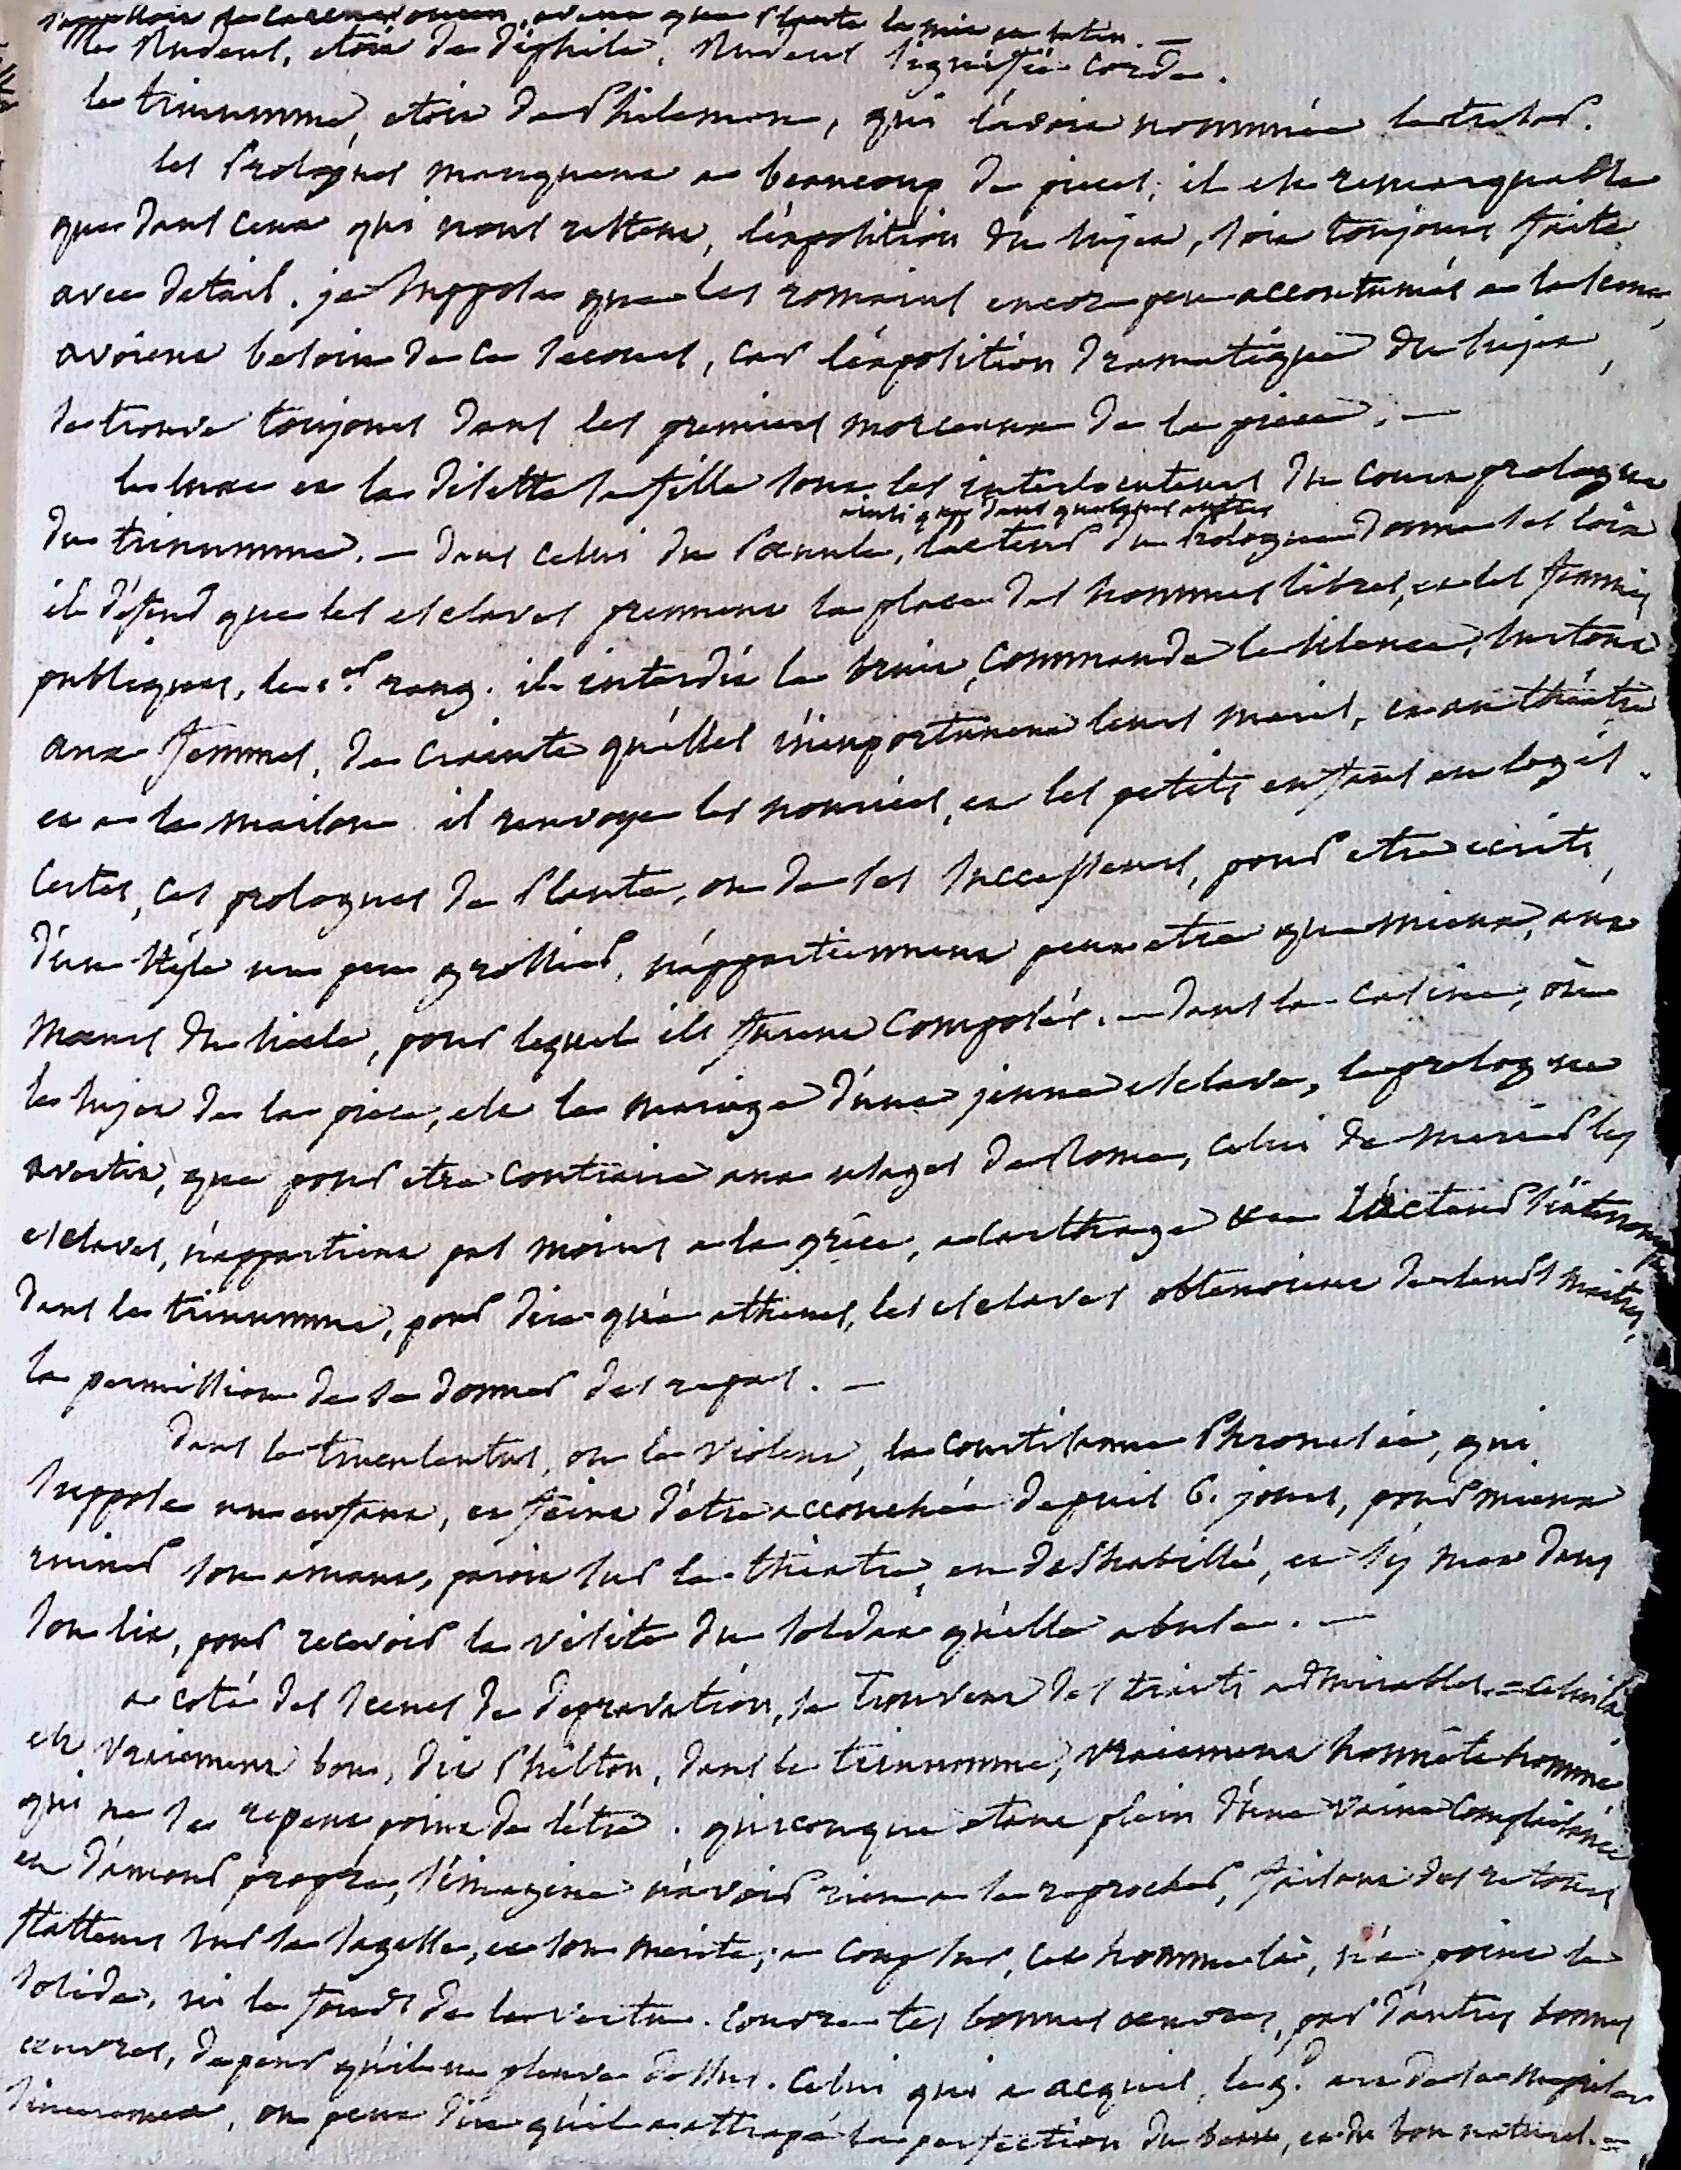 s'appelloit avant que Plaute la mis en latin. —
le Rudens, etoit de diphile, Rudens signifie corde.
le trinumme, etoit de Philemon, qui l'avoit nommée le tresor.
les Prologues manquent a beaucoup de pieces; il est remarquable
que dans ceux qui nous restent, l'exposition du sujet, soit toujours faite
avec detail. je suppose que les romains encore peu accoutumés a la scene,
avoient besoin de ce secours, car l'exposition dramatique du sujet,
se trouve toujours dans les premiers morceaux de la piece. —
le luxe et la disette sa fille sont les interlocuteurs du court prologue
ainsi que dans quelques autres
du trinumme. — dans celui du Poenule, l'acteur du Prologue donne les loix
il défend que les esclaves prennent la place des hommes libres, et les femmes
publiques, le 1er rang. il interdit le bruit, commande le silence, surtout
aux femmes, de crainte qu'elles n'importunent leurs maris, et au théatre
et a la maison. il renvoye les nourrices, et les petits enfans au logis.
Certes, ces prologues de Plaute, ou de ses successeurs, pour etre ecrits,
d'un style un peu grossier, n'appartiennent peut etre que mieux, aux
moeurs du siecle, pour lequel ils furent composés. — dans la casine, où
le sujet de la piece, est le mariage d'une jeune esclave, le prologue
avertit, que pour etre contraire aux usages de Rome, celui de marier les
esclaves, n'appartient pas moins a la grèce, a Carthage l'acteur s'interrompt
dans le trinumme, pour dire qu'a athenes, les esclaves obtenoient de leurs maitres,
la permission de se donner des repas. —
dans le truculentus, ou le violent, la courtisanne Phronesie, qui
suppose un enfant, et feint d'être accouchée depuis 6. jours, pour mieux
ruiner son amant, paroit sur le théatre, en deshabillé, et s'y met dans
son lit, pour recevoir la visite du soldat qu'elle abuse. —
a coté des scenes de depravation, se trouvent des traits admirables. = celui là
est vraiement bon, dit Philton, dans le trinumme, vraiement honnête homme
qui ne se repent point de l'être. quiconque etant plein d'une vaine complaisance
et d'amour propre, s'imagine n'avoir rien a se reprocher, faisant des retours
flatteurs sur sa sagesse, et son merite; a coup sur, cet homme là, n'a point le
solide, ni le fonds de la vertu. Couvre tes bonnes oeuvres, par d'autres bonnes
oeuvres, de peur qu'il ne pleuve dessus. Celui qui a acquis, le gd art de se mepriser
sincerement, on peut dire qu'il a attrapé la perfection du beau, et du bon naturel. =